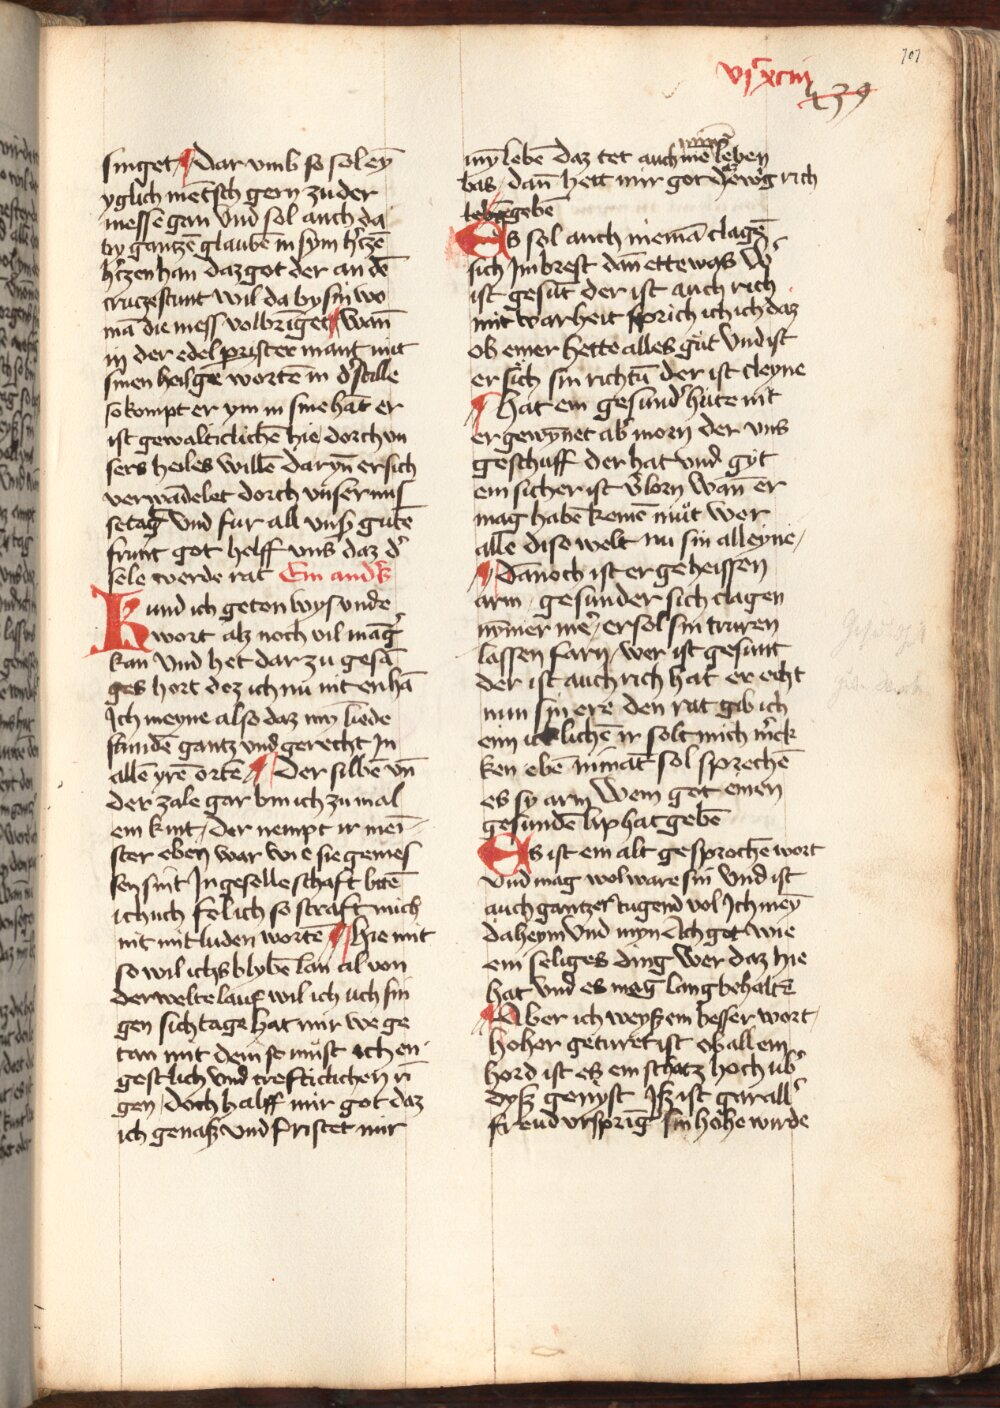 701
vjͨ xciij
239
singet / Dar vmb so sol eȳ
yglich mētsch gern zu der
messe gan Vnd sol auch da
by gantzē glaubē in sym h'czē
h'czen han daz got der an dē
crucze stunt wil da by sin wo
mā die mess volbringet Wan̄
in der edel prister mant mit
sinen heilgē wortē in d' stille
so kompt er ym in sine hāt er
ist gewalticlichē hie dorch vn
sers heiles willē daryn̄ er sich
verwādelet dorch vnser mis
setag Vnd fur all vnß gutē
frunt got helff vns daz d'
sele werde rat Ein and's
Kund ich geton wys vnde
wort alz noch vil māg'
kan Vnd het dar zu gesā
ges hort dez ich nu nit enhā
Ich meyne also daz my liede
stundē gantz vnd gerecht Jn
allē yrē ortē Der silbē vn̄
der zale gar bin ich zu mal
ein kint / der nempt ir mei
ster eben war wie sie gemes
sen sint Jn geselleschaft bitē
ich uch fel ich so straft mich
nit mit luden wortē Hie mit
so wil ichs blybē lan al von
der welte lauf wil ich uch sin
gen sichtage hat mir we ge
tan mit dem so must ich en
gestlich vnd crefticlichen ri
gen / doch halff mir got daz
ich genaß vnd fristet mir
my lebē daz tet auch mē leben
bas / dan̄ hett mir got der ewig rich
geben
Es sol auch niemā clagē
sich Jm brest dan ettewas Wer
ist gesūt der ist auch rich
mit warheit sprich ich ich daz
ob einer hette alles gut Vnd ist
er sich sin richtū der ist cleyne
Hat ein gesund' hute nit
er gewynet ab' morn der vns
geschuff der hat vnd gyt
ein sicher ist v'lorn wan er
mag habē keinē mut wer
alle dise welt nu sin alleyne /
Dānoch ist er geheissen
arm / gesunder sich clagen
nȳmer me' / er sol sin truren
lassen farn / wer ist gesunt
der ist auch rich hat er echt
nun sin ere den rat gib ich
eim icklichē ir solt mich m'ck
ken ebē nimāt sol sprechē
es sy arm Wem got einen
gesundē lip hat gebē
Es ist ein alt gesprochē wort
Vnd mag wol ware sin Vnd ist
auch gantzer tugend vol Ich meȳ
daheym Vnd myn Ach got wie
ein seliges ding Wer daz hie
hat vnd es mag lang behaltē
Aber ich weyß ein besser wort /
hoher geturet ist ob allem
hord ist es ein schatz hoch ub'
dyß genyst Iß ist gar all'
freud vrsprīg sin hohe wirde